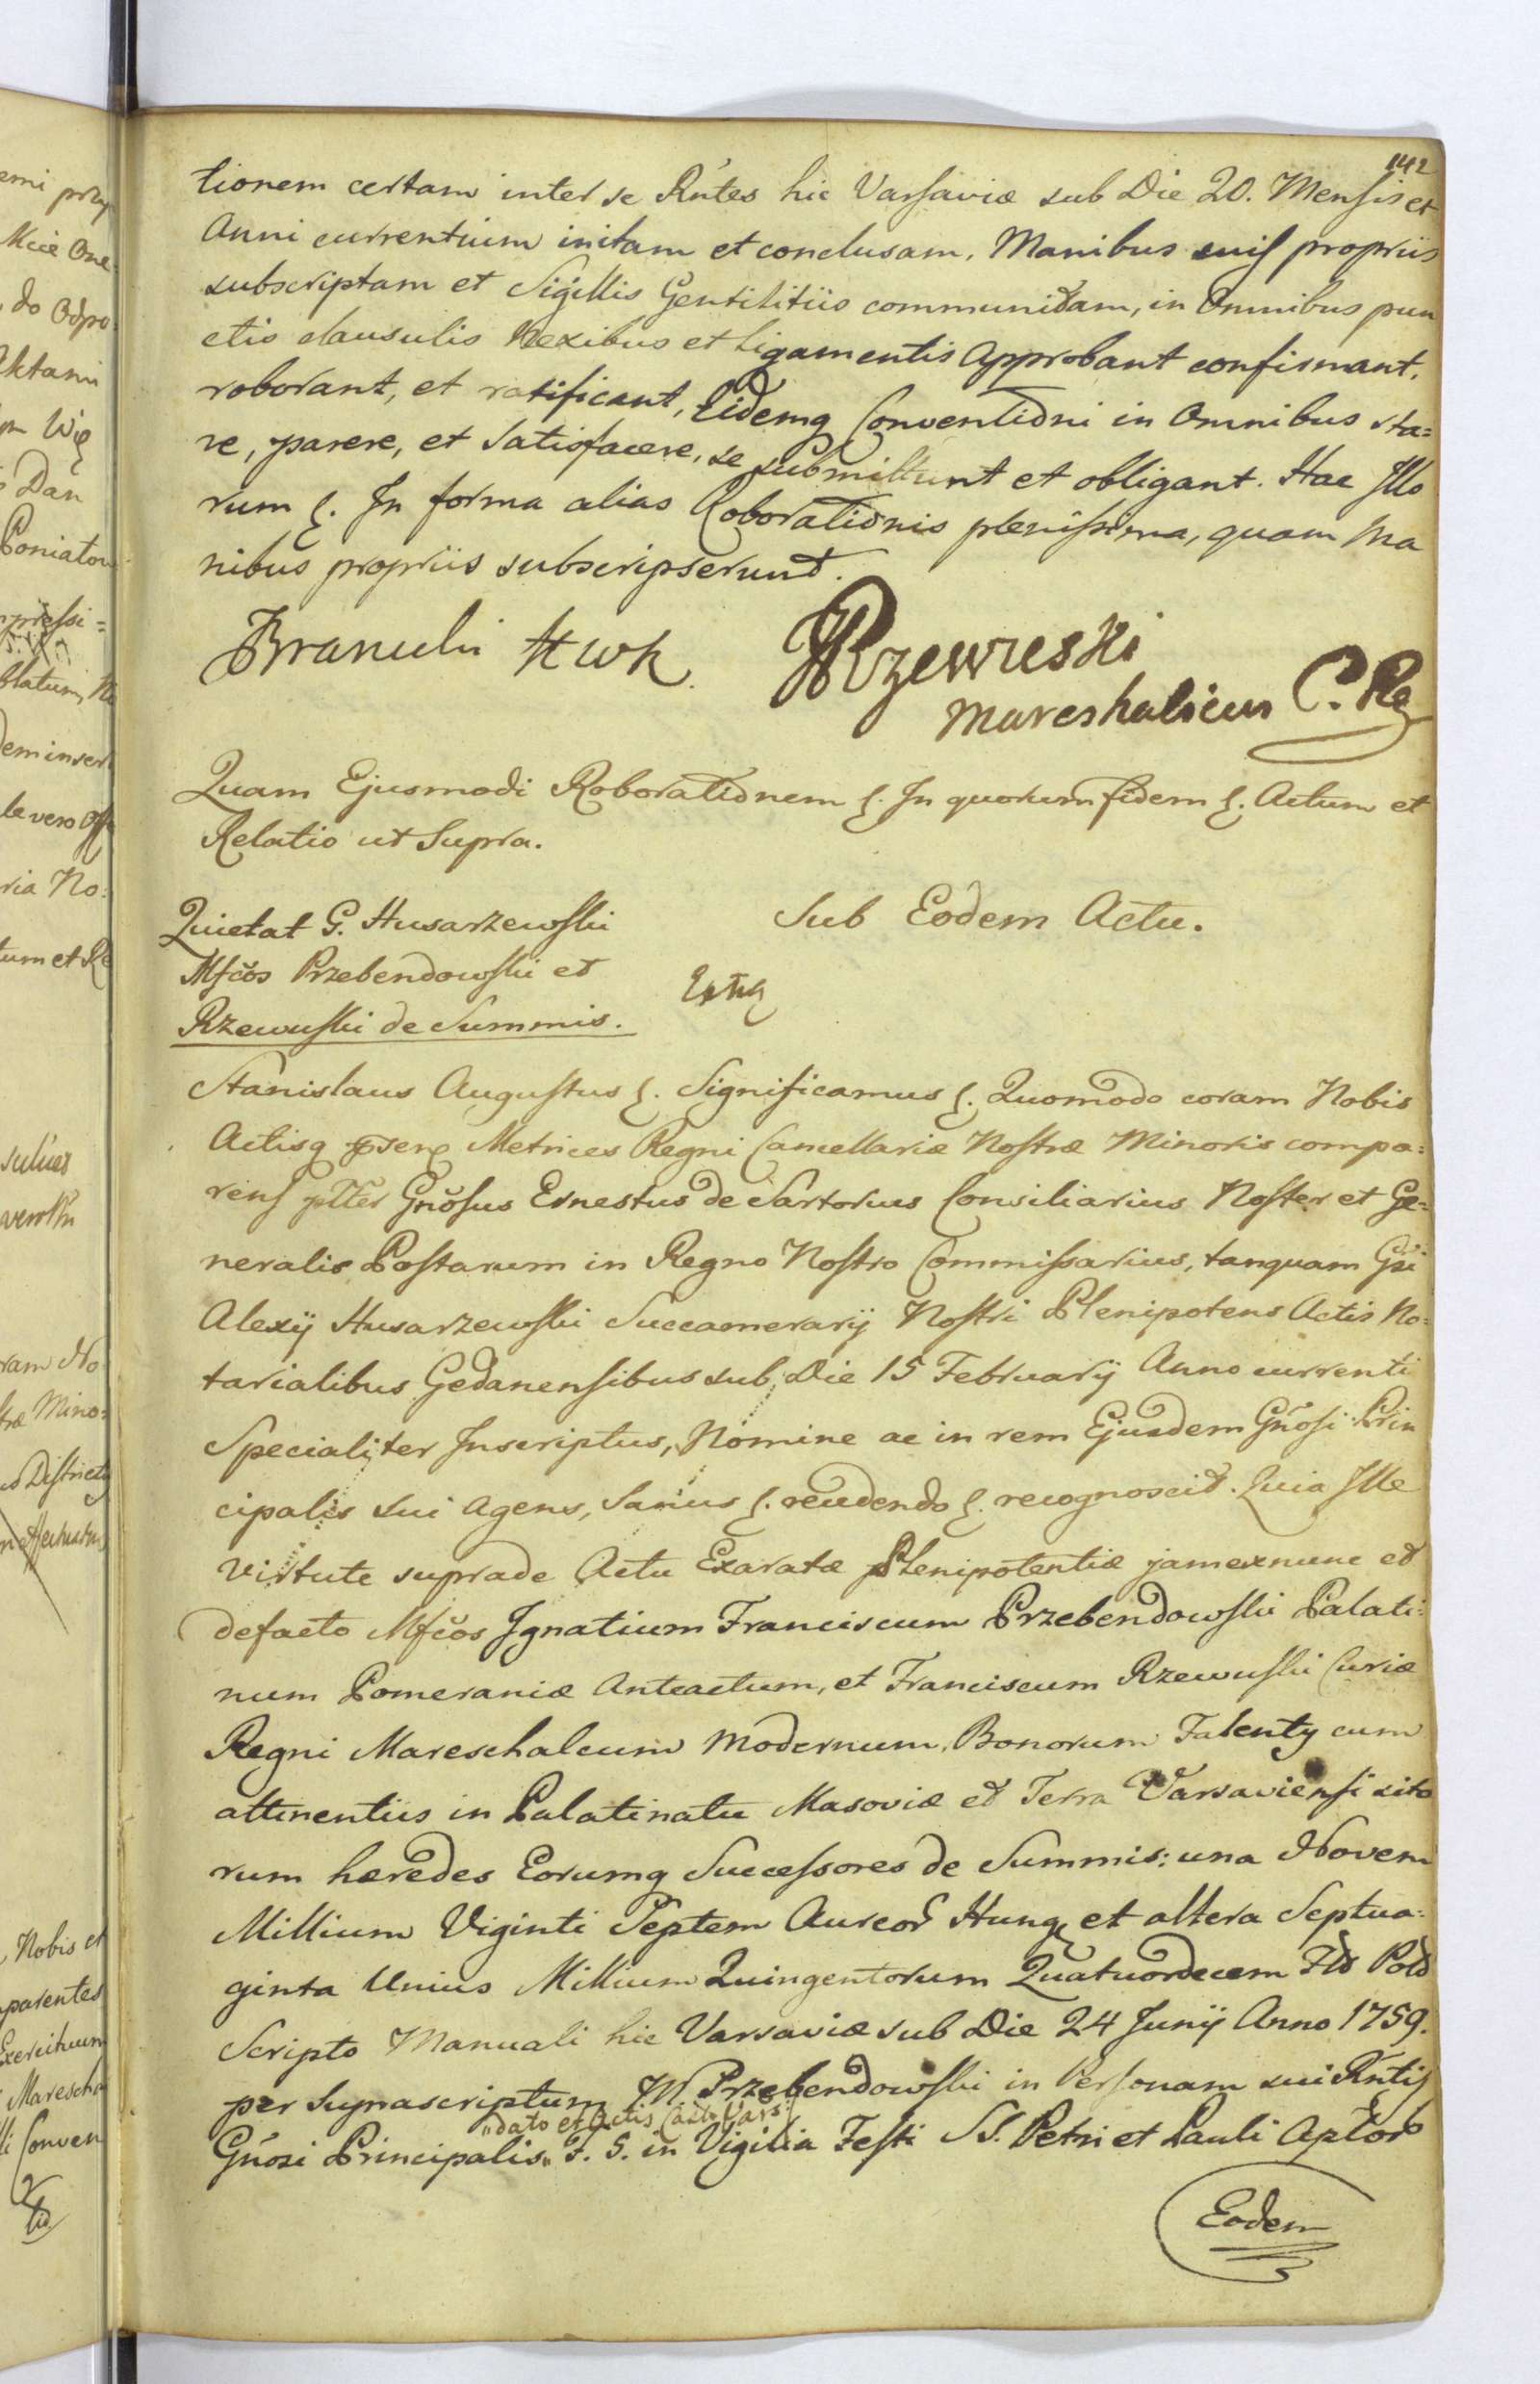 142
tionem certam inter se Rñtes hic Varsaviæ sub Die 20. Mensis et
Anni currentium initam et conclusam, Manibus suis propriis
subscriptam et Sigillis Gentilitiis communitam, in Omnibus pun
ctis clausulis Nexibus et Ligamentis Approbant confirmant,
roborant, et ratificant, Eidemq Conventioni in Omnibus sta=
re, parere, et Satisfacere, se submittunt et obligant. Hac Illo
rum ɾ. In forma alias Roborationis plenissima, quam Ma
nibus propriis subscripserunt.
Branicki HWK. FRzewuski
Mareshalicus C. Rg
Quam Ejusmodi Roborationem ɾ. In quorum fidem ɾ. Actum et
Relatio ut Supra.
Quietat G. Husarzewski
Mfcos Przebendowski et
Rzewuski de Summis.
Sub Eodem Actu.
Stanislaus Augustus ɾ. Significamus ɾ. Quomodo coram Nobis
Actisq Metrices Regni Cancellariæ Nostræ Minoris compa=
rens pltter Gnosus Ernestus de Sartorius Consiliarius Noster et Ge=
neralis Postarum in Regno Nostro Commissarius, tanquam Gsi
Alexij Husarzewski Succamerarij Nostri Plenipotens Actis No=
tarialibus Gedanensibus sub Die 15 Februarij Anno currenti
Specialiter Inscriptus, Nomine ac in rem Ejusdem Gnosi Prin
cipalis sui Agens, Sanus ɾ. recedendo ɾ. recognoscit. Quia Ille
Virtute suprade Actu Exaratæ Plenipotentiæ jamexnunc et
defacto Mfcos Ignatium Franciscum Przebendowski Palati=
num Pomeraniæ Anteactum, et Franciscum Rzewuski Curiæ
Regni Mareschalcum Modernum, Bonorum Falenty cum
attinentiis in Palatinatu Masoviæ et Terra Varsaviensi sito
rum hæredes Eorumq Successores de Summis: una Novem
Millium Viginti Septem Aureor Hung et altera Septua=
ginta Unius Millium Quingentorum Quatuordecem Fld Pold
Scripto Manuali hic Varsaviæ sub Die 24 Junij Anno 1759.
per Supnascriptum M Przebendowski in Personam sui Rntis
"dato et Actis Vars:
Gnosi Principalis" F. S. in Vigilia Festi SS. Petri et Pauli Aptor
Eodem